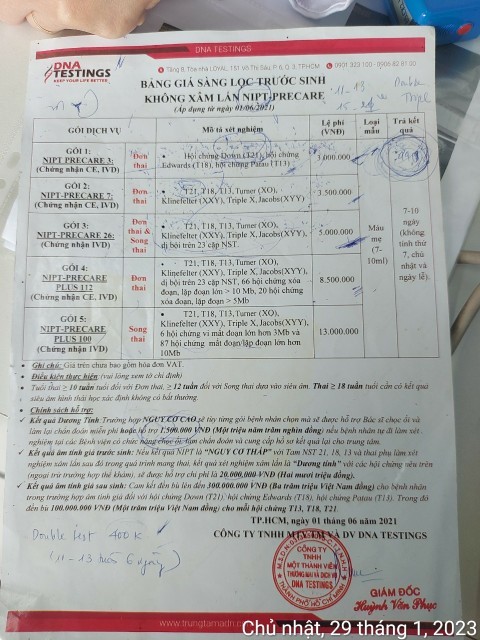 DNA TESTINGS
DNA TESTINGS
KEEP YOUR LIFE BETTER...
Tầng 8, Tòa nhà LOYAL, 151 Võ Thị Sáu, P. 6, Q. 3, TP.HCM
0901 323 100 - 0905 82 81 00
BẢNG GIÁ SÀNG LỌC TRƯỚC SINH
KHÔNG XÂM LẤN NIPT-PRECARE
(Áp dụng từ ngày 01/06/2021)
11-13
Double
GÓI DỊCH VỤ
Mô tả xét nghiệm
Lệ phí (VNĐ)
Loại mẫu
Trả kết quả
GÓI 1:
NIPT-PRECARE 3:
(Chứng nhận CE, IVD)
Đơn thai
Hội chứng Down (T21), hội chứng
Edwards (T18), hội chứng Patau (T13)
3.000.000
GÓI 2:
NIPT-PRECARE 7:
(Chứng nhận CE, IVD)
Đơn thai
T21, T18, T13, Turner (XO),
Klinefelter (XXY), Triple X, Jacobs(XYY)
3.500.000
GÓI 3:
NIPT-PRECARE 26:
(Chứng nhận IVD)
Đơn thai & Song thai
T21, T18, T13, Turner (XO),
Klinefelter (XXY), Triple X, Jacobs(XYY),
dị bội trên 23 cặp NST.
5.000.000
GÓI 4:
NIPT-PRECARE
PLUS 112
(Chứng nhận CE, IVD)
Đơn thai
T21, T18, T13, Turner (XO),
Klinefelter (XXY), Triple X, Jacobs(XYY),
dị bội trên 23 cặp NST, 66 hội chứng xóa
đoạn, lặp đoạn lớn > 10 Mb, 20 hội chứng
xóa đoạn, lặp đoạn > 5Mb
8.500.000
GÓI 5:
NIPT-PRECARE
PLUS 100
(Chứng nhận IVD)
Song thai
T21, T18, T13, Turner (XO),
Klinefelter (XXY), Triple X, Jacobs(XYY),
6 hội chứng vi mất đoạn lớn hơn 3Mb và
87 hội chứng mất đoạn/lặp đoạn lớn hơn
10Mb
13.000.000
Máu mẹ (7-10ml)
7-10 ngày (không tính thứ 7, chủ nhật và ngày lễ).
Ghi chú: Giá trên chưa bao gồm hóa đơn VAT.
Điều kiện thực hiện: (vui lòng xem tờ chỉ định)
Tuổi thai ≥ 10 tuần tuổi đối với Đơn thai, ≥ 12 tuần đối với Song thai dựa vào siêu âm. Thai ≥ 18 tuần tuổi cần có kết quả
siêu âm hình thái học xác định không có bất thường.
Chính sách hỗ trợ:
Kết quả Dương Tính: Trường hợp NGUY CƠ CAO sẽ tùy từng gói bệnh nhân chọn mà sẽ được hỗ trợ Bác sĩ chọc ối và
làm lại chẩn đoán miễn phí hoặc hỗ trợ 1.500.000 VNĐ (Một triệu năm trăm nghìn đồng) nếu bệnh nhân tự đi làm xét
nghiệm tại các Bệnh viện có chức năng chọc ối làm chẩn đoán và cung cấp hồ sơ kết quả lại cho trung tâm.
Kết quả âm tính giả trước sinh: Nếu kết quả NIPT là “NGUY CƠ THẤP” với Tam NST 21, 18, 13 và thai phụ làm xét
nghiệm xâm lấn sau đó trong quá trình mang thai, kết quả xét nghiệm xâm lấn là “Dương tính” với các hội chứng nêu trên
(ngoại trừ trường hợp thể khảm), sẽ được hỗ trợ chi phí là 20.000.000 VNĐ (Hai mươi triệu đồng).
Kết quả âm tính giả sau sinh: Cam kết đền bù lên đến 300.000.000 VNĐ (Ba trăm triệu Việt Nam đồng) cho bệnh
nhân trong trường hợp âm tính giả đối với hội chứng Down (T21), hội chứng Edwards (T18), hội chứng Patau (T13). Trong đó
đền bù 100.000.000 (Một trăm triệu Việt Nam đồng) cho mỗi hội chứng T13, T18, T21.
TP.HCM, ngày 01 tháng 06 năm 2021
CÔNG TY TNHH MTV TM VÀ DV DNA TESTINGS
Double test 400K
(11-13 tuần 6 ngày)
CÔNG TY
TNHH
MỘT THÀNH VIÊN
THƯƠNG MẠI VÀ DỊCH VỤ
DNA TESTINGS
THÀNH PHỐ HỒ CHÍ MINH
GIÁM ĐỐC
Huỳnh Văn Phục
Chủ nhật, 29 tháng 1, 2023